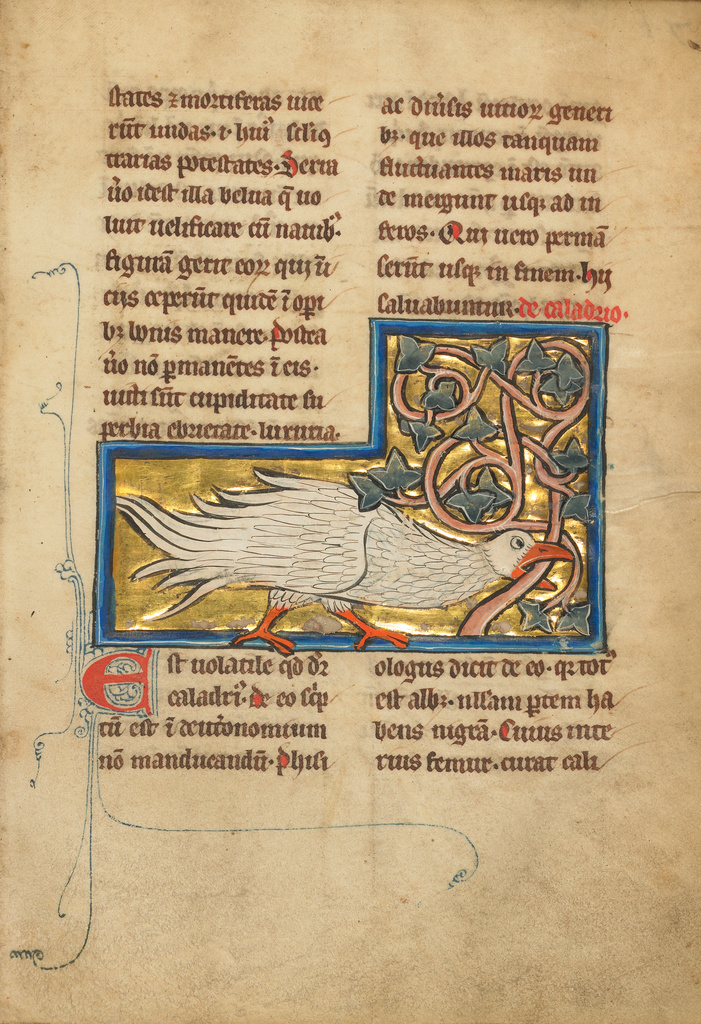 states ⁊ mortiferas uice
rūt undas · i · huiꝰ sclīꝯ
trarias potestates · Seria
u̇o idest illa belua q̄ uo
luit uelificare cū nauibꝫ ·
figurā gerit eoꝝ qui ī
ciis ceperūt quidē ī opi
bꝫ bonis manere · Postea
u̇o nō ꝑmanētes ī eis ·
uicti sūt cupiditate su
perbia ebrietate · luxuria ·
ac diūsis uitioꝝ generi
bꝫ · que illos tanquam
fluctuantes maris un
de mergunt usqꝫ ad in
feros · Qui uero permā
serūt usqꝫ in finem · hij
saluabuntur · de caladrio ·
Est uolatile qd dr̄
caladri᷒ · de eo sc̄p
tū est ī deut̄onomium
nō manducandū · Phisi
ologus dicit de eo · qꝫ totꝰ
est albꝫ · nllam ꝑtem ha
bens nigrā · Cuius inte
rius femur · curat cali